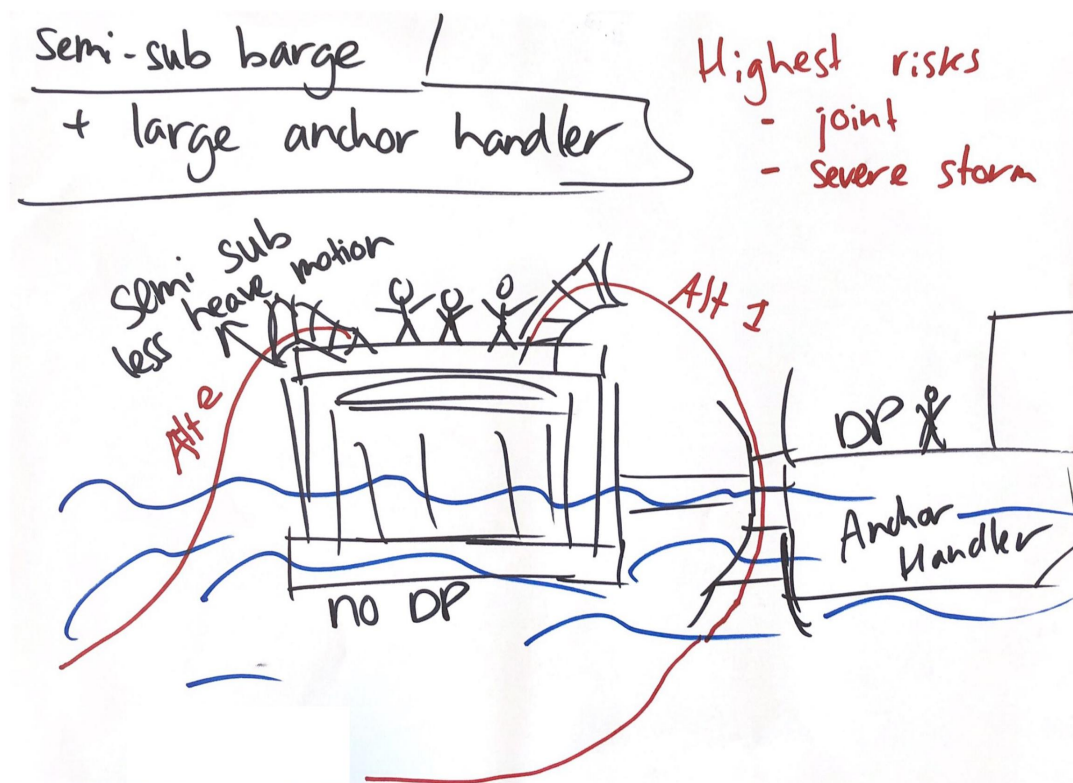 semi-sub barge
+ large anchor handler
Highest risks
- joint
- severe storm
semi sub
less heave motion
Alt 2
Alt 1
DP
Anchor
Handler
no DP